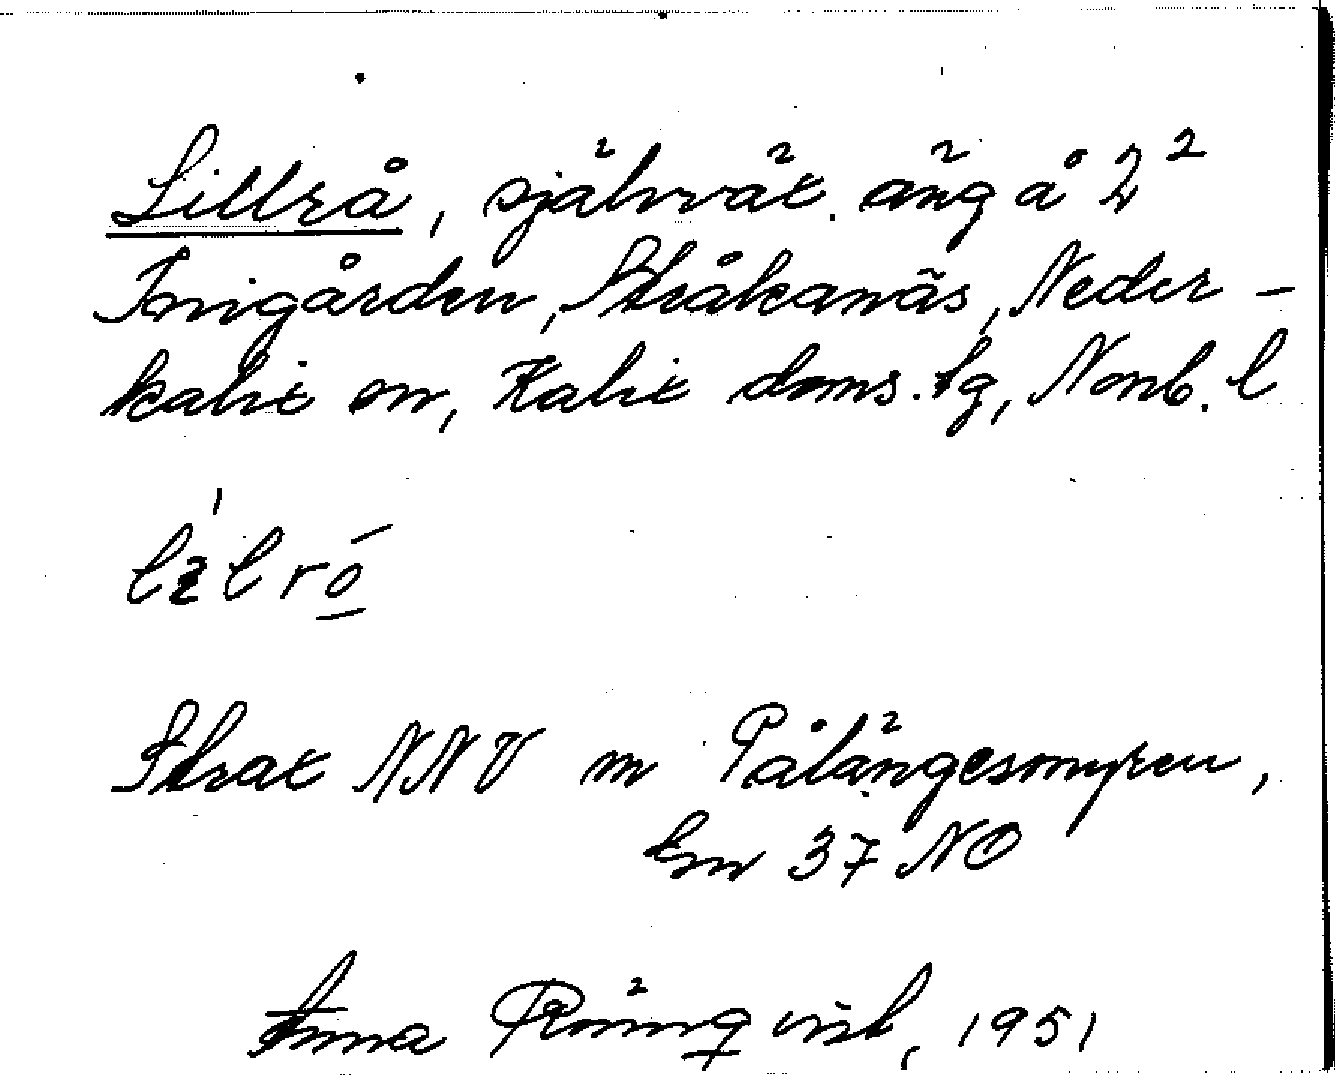 Lillrå, självväx. äng å 2²
Tonigården, Stråkanäs, Neder-
kalix sn, Kalix doms. lg, Norrb. l
Strax NNV om Pålängesmyren,
kbl 37 NO
Anna Rönnqvist, 1951